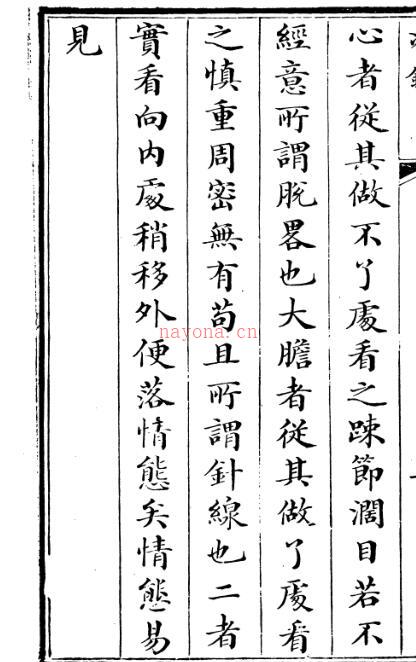 心者從其做不了處看之踈節濶目若不
經意所謂脫畧也大膽者從其做了處看
之慎重周密無有苟且所謂針線也二者
實看向内處稍移外便落情態矣情態易
見
nayona.cn